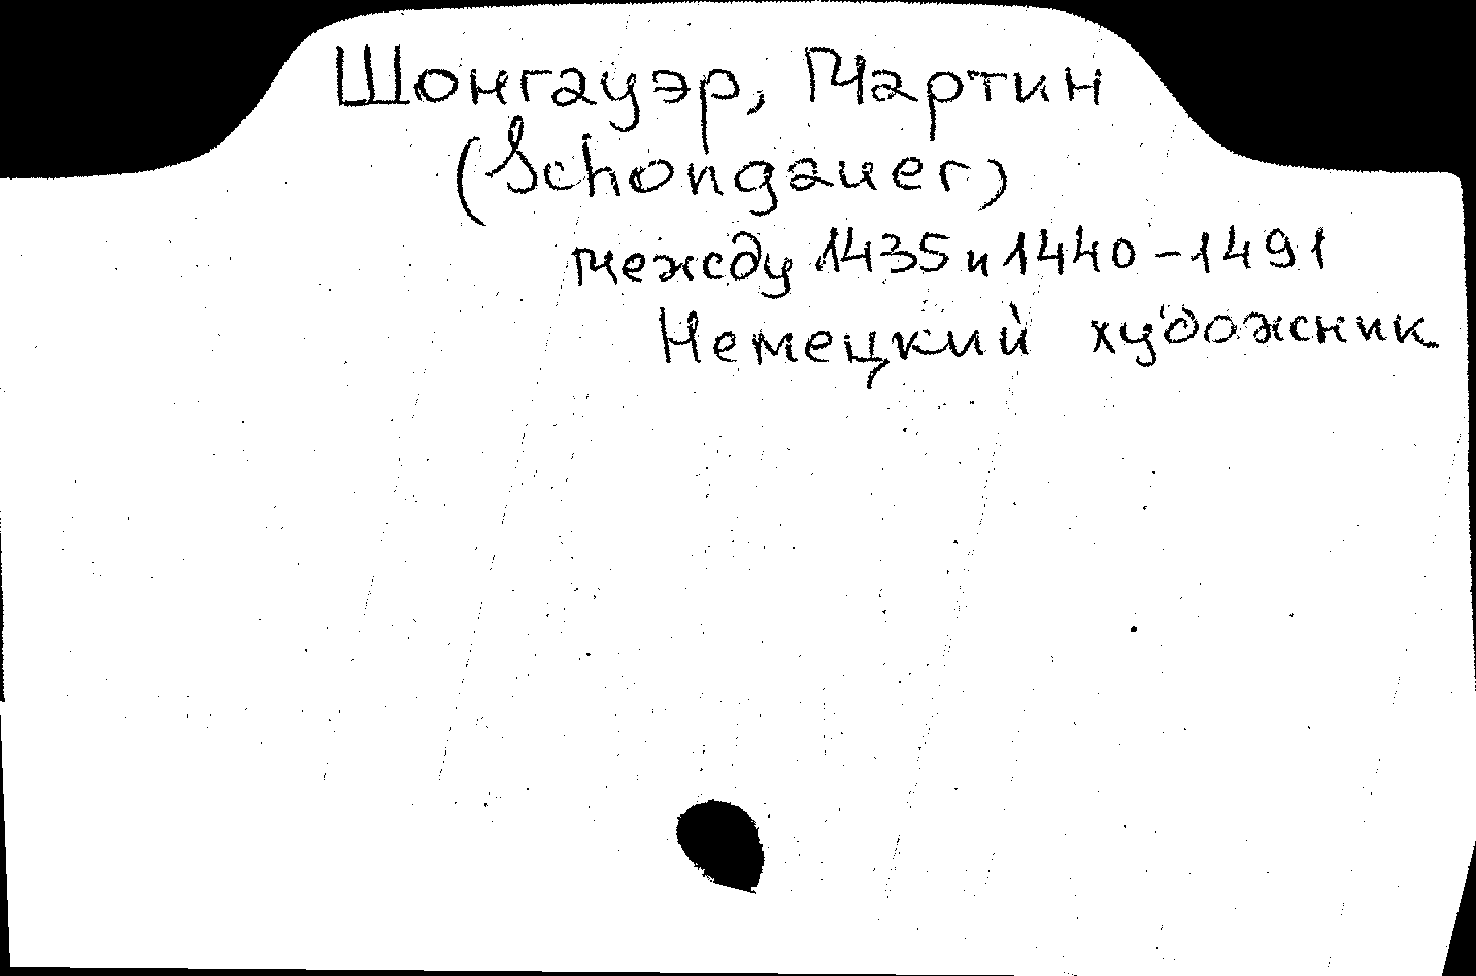 Шонгауэр, Мартин
(Schongauer)
между 1435 и 1440-1491
Немецкий художник